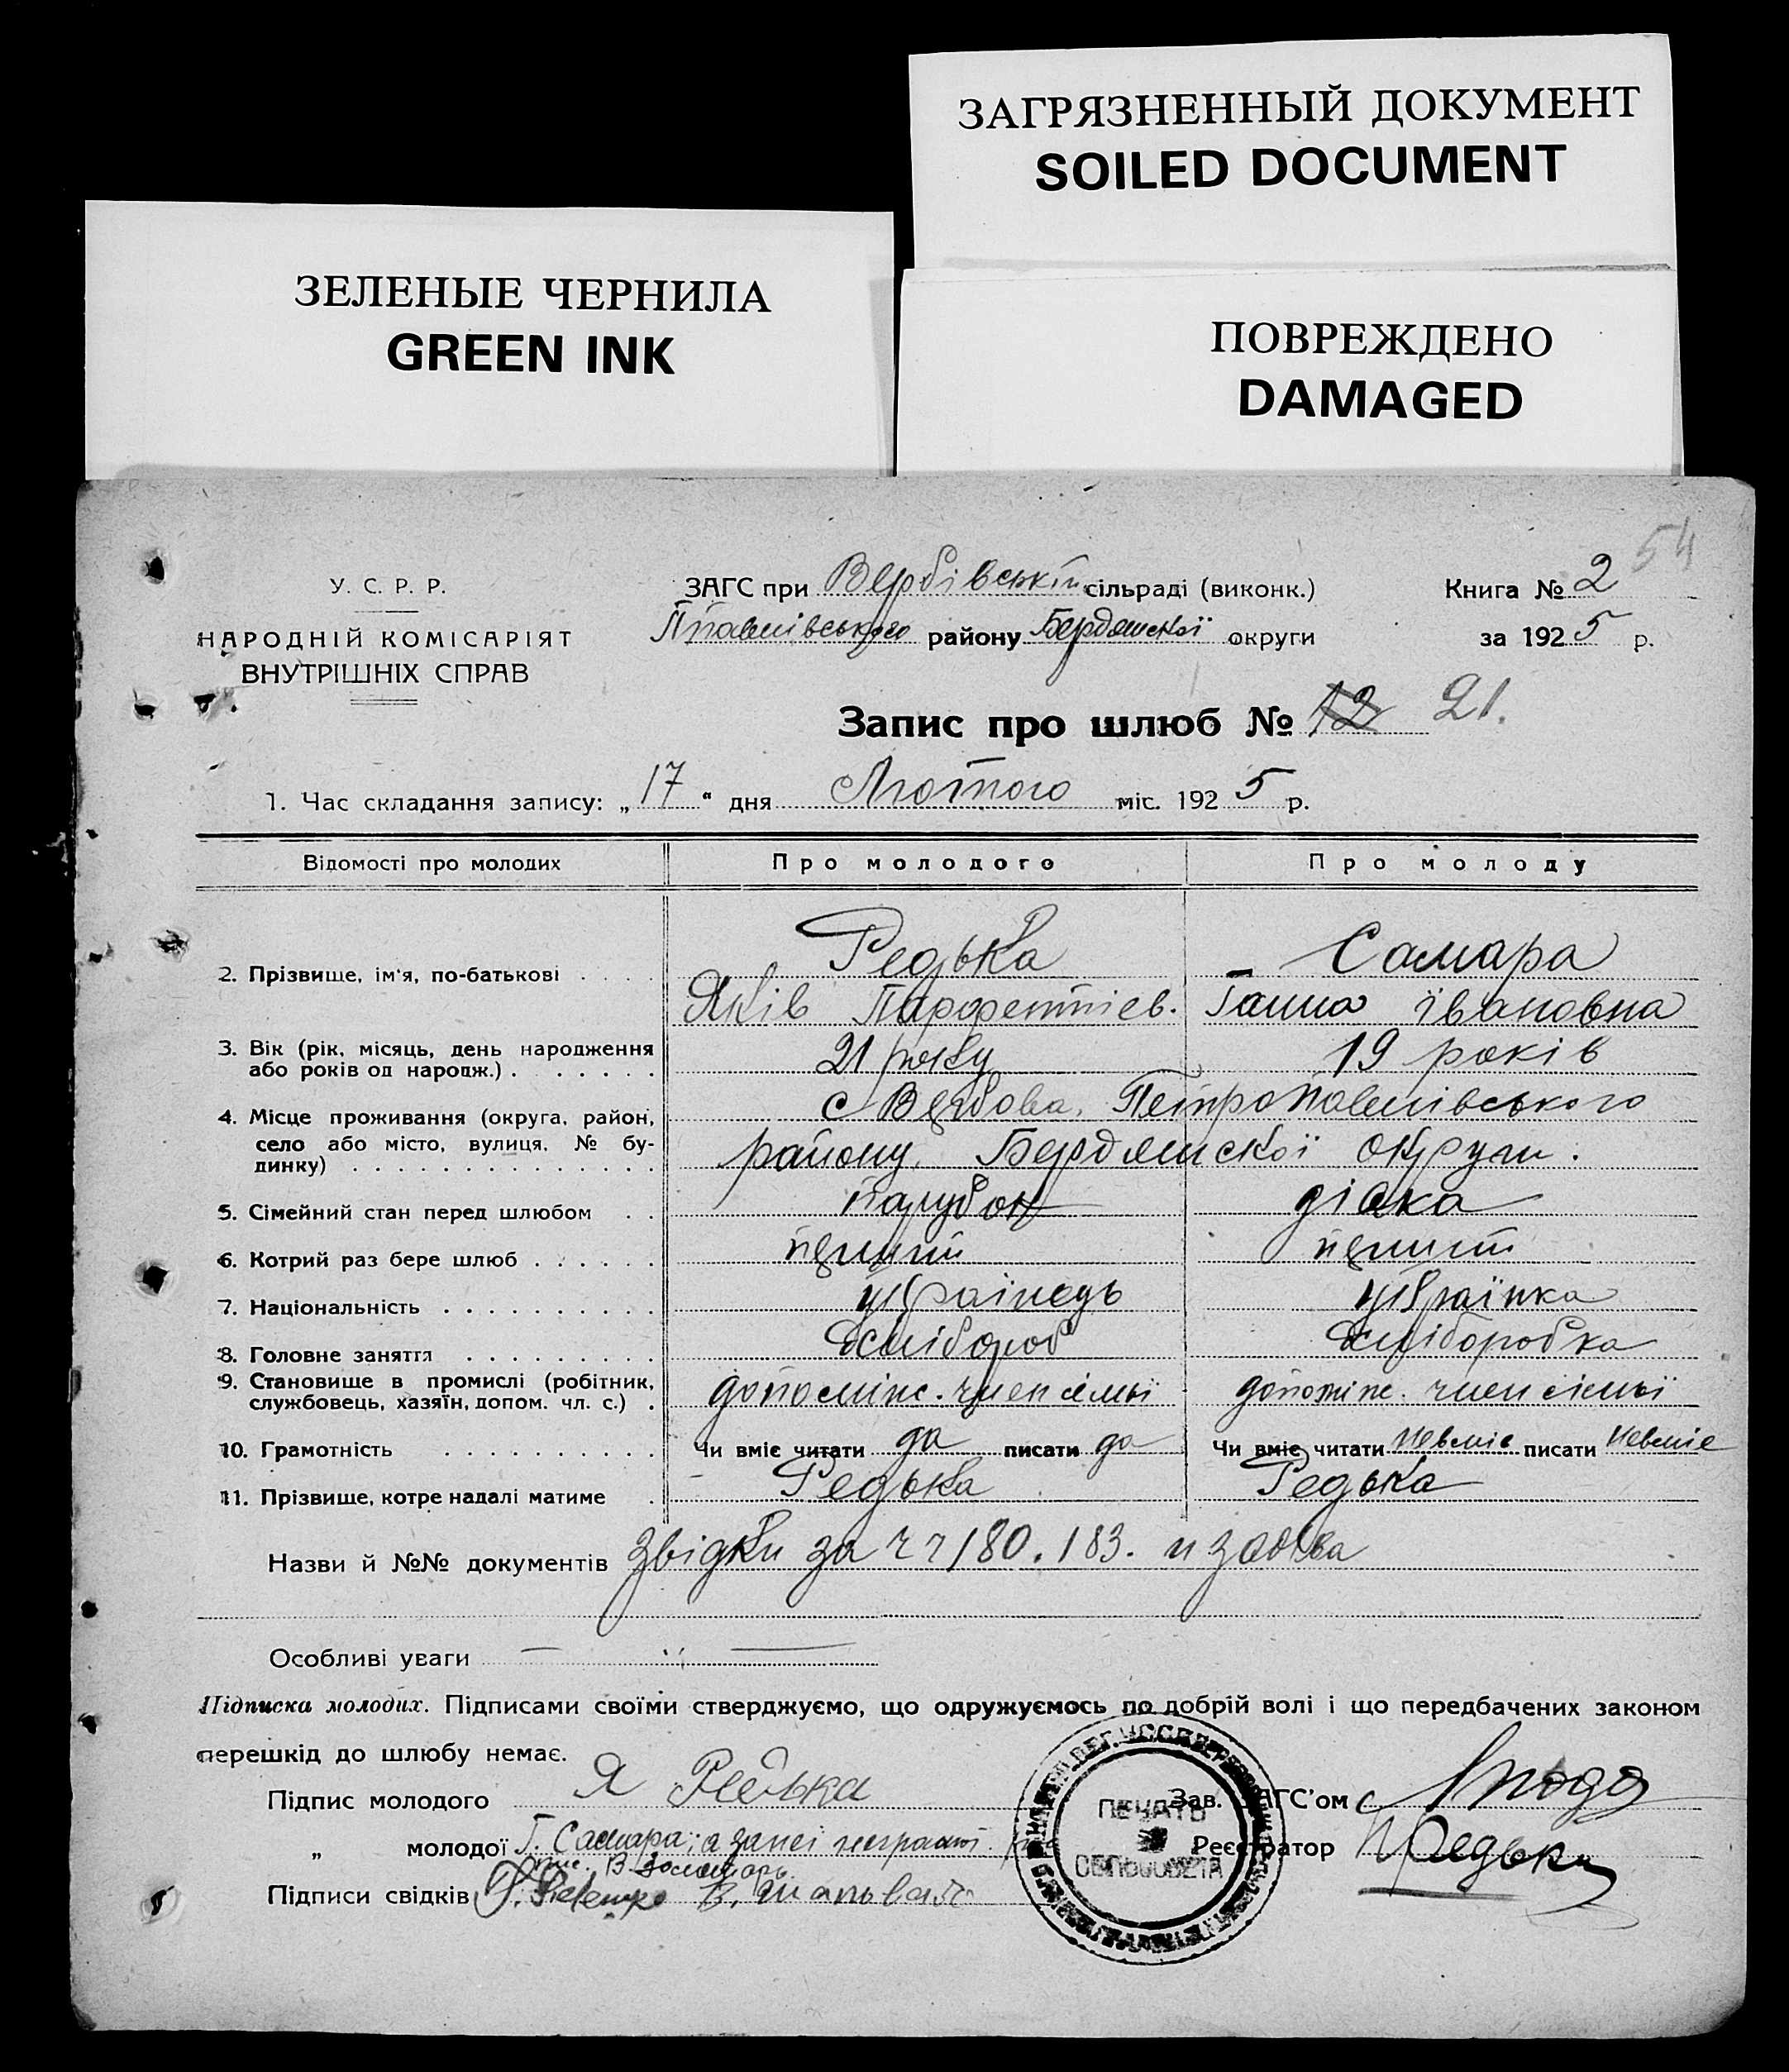 ЗАГРЯЗНЕННЫЙ ДОКУМЕНТ
SOILED DOCUMENT
ЗЕЛЕНЫЕ ЧЕРНИЛА
GREEN INK
ПОВРЕЖДЕНО
DAMAGED
54
У. С. Р. Р.
НАРОДНІЙ КОМІСАРІЯТ
ВНУТРІШНІХ СПРАВ
ЗАГС при Вербівській сільраді (виконк.)
Ппавлівського району Бердянської округи
Книга № 2
за 1925 р.
Запис про шлюб № 12 21.
1. Час складання запису: „17“ дня Лютого міс. 1925 р.
Відомості про молодих Про молодого Про молоду
2. Прізвище, ім'я, по-батькові . . . . Редька Самара
Яків Парфентіев. Ганна Івановна
3. Вік (рік, місяць, день народження 21 року 19 років
або років од народж.) . . . . . . .
4. Місце проживання (округа, район, с Вербова, Петропавлівського
село або місто, вулиця, № бу-
динку) . . . . . . . . . . . . . . району, Бердянскої округи.
5. Сімейний стан перед шлюбом . . парубок дівка
6. Котрий раз бере шлюб . . . . . . перший перший
7. Національність . . . . . . . . . . українець українка
8. Головне заняття . . . . . . . . . хлібороб хліборобка
9. Становище в промислі (робітник, допоміжн. член сімьї допоміжн. член сімьї
службовець, хазяїн, допом. чл. с.) .
10. Грамотність . . . . . . . . . . Чи вміє читати да писати да Чи вміє читати невміє писати невміє
11. Прізвище, котре надалі матиме . Редька Редька
Назви й №№ документів Звідки за чч 180. 183. и заява
Особливі уваги
Підписка молодих. Підписами своїми стверджуємо, що одружуємось по добрій волі і що передбачених законом
перешкід до шлюбу немає.
Підпис молодого Я Редька Зав. ЗАГС'ом
„ молодої Г. Самара, а за неї неграмот. Реєстратор Редька
Підписи свідків В.
ПЕЧАТЬ
СЕЛЬСОВЕТА